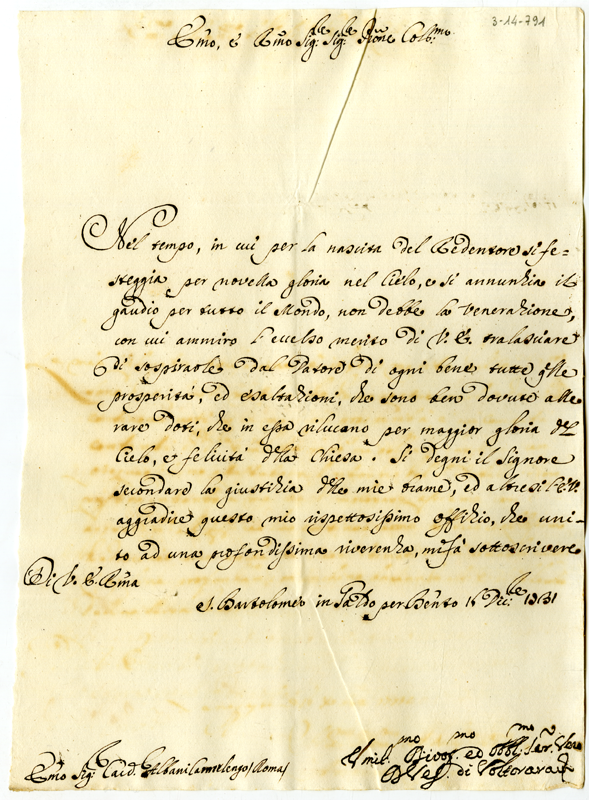 3-14-791
Emo, e Rmo Sig.re Sig.re Pne Colmo
Nel tempo, in cui per la nascita del Redentore si fe=
steggia per novella gloria nel Cielo, e si annunzia il
gaudio per tutto il Mondo, non debbe la venerazione,
con cui ammiro l'eccelso merito di V. E. tralasciare
di sospirarle dal Datore di ogni bene tutte qlle
prosperità, ed esaltazioni, che sono ben dovute alle
rare doti, che in essa rilucano per maggior gloria del
Cielo, e felicità della Chiesa. Si degni il Signore
secondare la giustizia delle mie brame, ed altresì l'E.V.
aggradire questo mio rispettosissimo offizio, che uni-
to ad una profondissima riverenza, mi fà sottoscrivere
Di V. E. Rma
S. Bartolomeo in Galdo per Bento 15 Dic.re 1731
Umil.mo Divot.mo ed Obbl.mo Ser. Vero
Emo Sig.r Card. Albani Camerlengo (Roma)
Il Ves. di Volturara